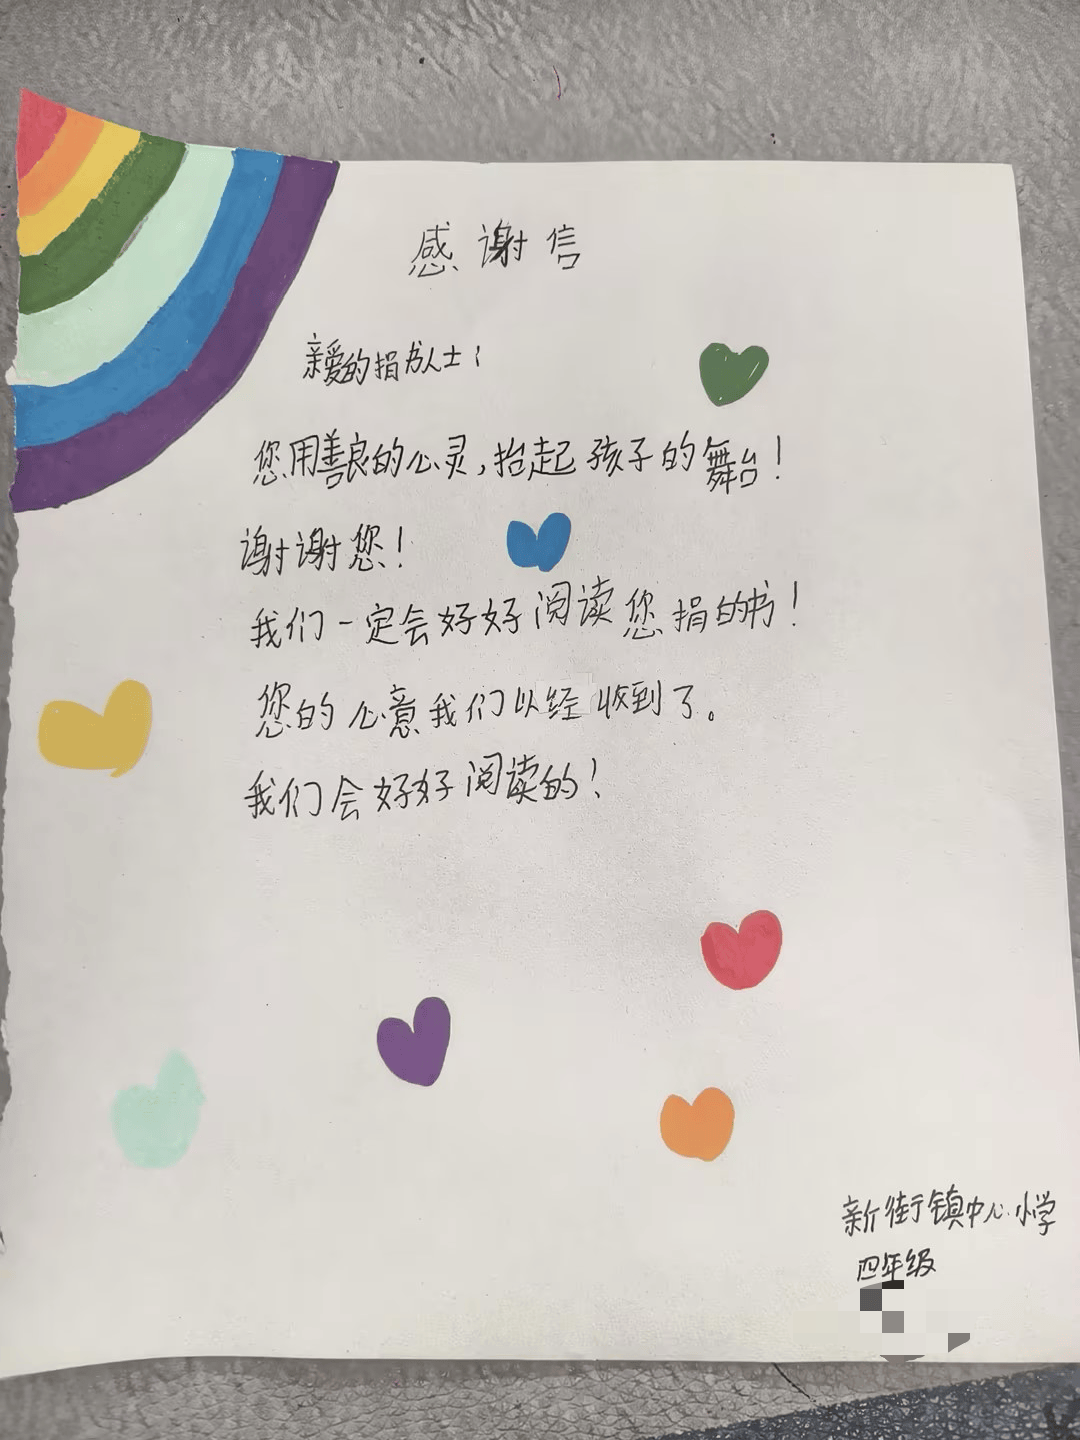 感谢信
亲爱的捐书人士：
您用善良的心灵，抬起孩子的舞台！
谢谢您！
我们一定会好好阅读您捐的书！
您的心意我们以经收到了。
我们会好好阅读的！
新街镇中心小学
四年级